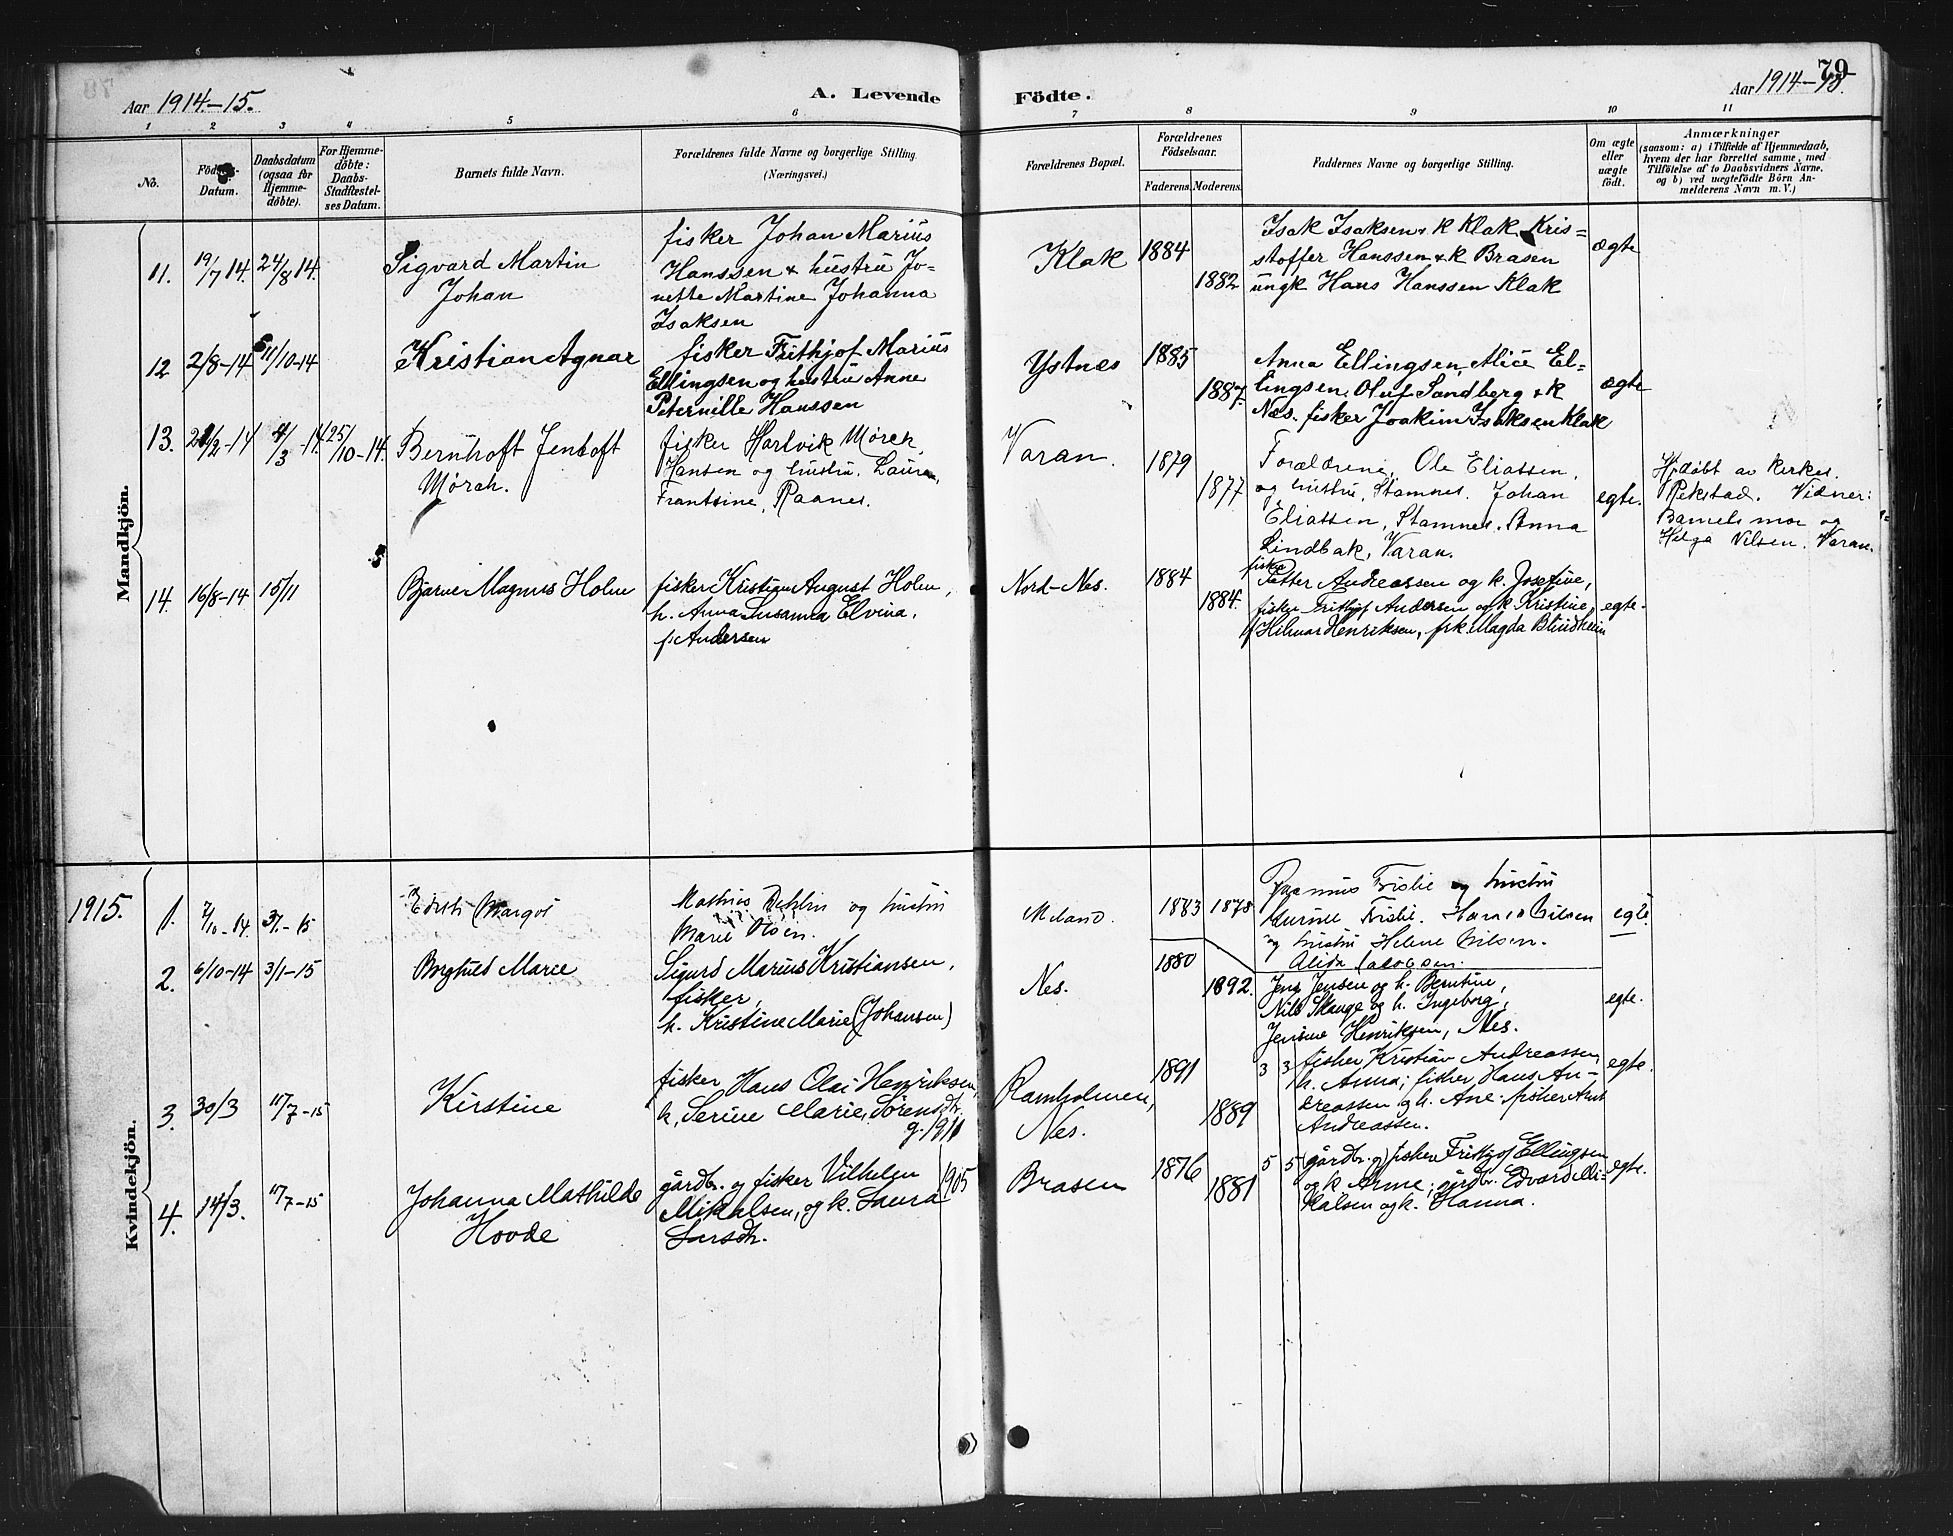 79
Aar 1914-15.
A. Levende
Födte.
Aar 1914-
1 2 3 4 5 6 7 8 9 10 11
No.
Datum.
Daabsdatum
(ogsaa for
Hjemme-
döbte).
For Hjemme-
döbte:
Daabs-
Stadfæstel-
ses Datum.
Barnets fulde Navn.
Forældrenes fulde Navne og borgerlige Stilling.
(Næringsvei.)
Forældrenes Bopæl.
Forældrenes
Födselsaar.
Faderens. Moderens.
Faddernes Navne og borgerlige Stilling.
Om ægte
eller
uægte
födt.
Anmærkninger
(saasom: a) i Tilfælde af Hjemmedaab,
hvem der har forrettet samme, med
Tilföielse af to Daabsvidners Navne,
og b) ved uægtefödte Börn An-
melderens Navn m. V.)
Mandkjön.
11. 19/7 14. 24/8 14.
Sigvard Martin
Johan
fisker Johan Marius
Hanssen & hustru Jo-
nette Martine Johanna
Isaksen
Klak
1884
1882
Isak Isaksen & k Klak Kris=
stoffer Hanssen & k Brasen
ungk Hans Hanssen Klak
ægte
12 2/8-14. 11/10-14
Kristian Agnar
fisker Frithjof Marius
Ellingsen og hustru Anne
Peternille Hanssen
Ystnes
1885
1887.
Anna Ellingsen, Alice El=
lingsen, Oluf Sandberg & k
Næs. fisker Joakim Isaksen Klak
ægte
13. 4/3-14. 25/10-14.
Bernhoft Jentoft
Mørch.
fisker Hartvik Mørch
Hansen og hustru Laura
Frantsine, Raanes.
Varan.
1879
1877
Forældrene, Ole Eliassen,
og hustru, Stamnes. Johan
Eliassen, Stamnes. Anna
Lindbak, Varan.
egte.
Hjdøbt av kirkes.
Rekstad. Vidner:
Barnets mor og
Helga Nilsen. Varan.
14. 16/8-14 15/11
Bjarne Magnus Holm
fisker Kristian August Holm,
h. Anna Susanna Elvina,
f. Andersen
Nord-Nes.
1884
1884.
fisker
Petter Andreassen og k. Josefine,
fisker Frithjof Andersen og k Kristine,
Hilmar Henriksen, frk. Magda Blindheim
egte.
1915.
Kvindekjön.
1. 7/10-14. 3/1-15
Edith Margot
Mathias Dehlin og hustru
Marie Olsen.
Meland.
1883 1878
Rasmus og hustru
Nilsen
og hustru Helene Nilsen.
Alida Jacobsen.
egte
2. 6/10-14 3/1-15
Borghild Marie
Sigurd Marius Kristiansen,
fisker,
h. Kristine Marie (Johansen)
Nes.
1880
1892.
Jens Jensen og h. Berntine,
Nils Skauge og h. Ingeborg,
Jensine Henriksen, Nes.
egte.
3. 30/3 11/7-15
Kirstine
fisker Hans Olai Henriksen,
h. Serine Marie Sørensdtr.
g. 1911
Ramholmen,
Nes.
1891
1889
3 3
fisker Kristian Andreassen,
h. Anna; fisker Hans An-
dreassen og h. Ane. fisker Arnt
Andreassen.
egte.
4. 14/3. 11/7-15
Johanna Mathilde
Hovde
gårdbr. og fisker Vilhelm
Mikalsen, og k. Laura
Larsdtr.
1905
Brasen
1876
1881
5 5
gårdbr. og fisker Frithjof Ellingsen
og k Anne; gårdbr. Edvard Mi-
kalsen og k. Hanna.
egte.